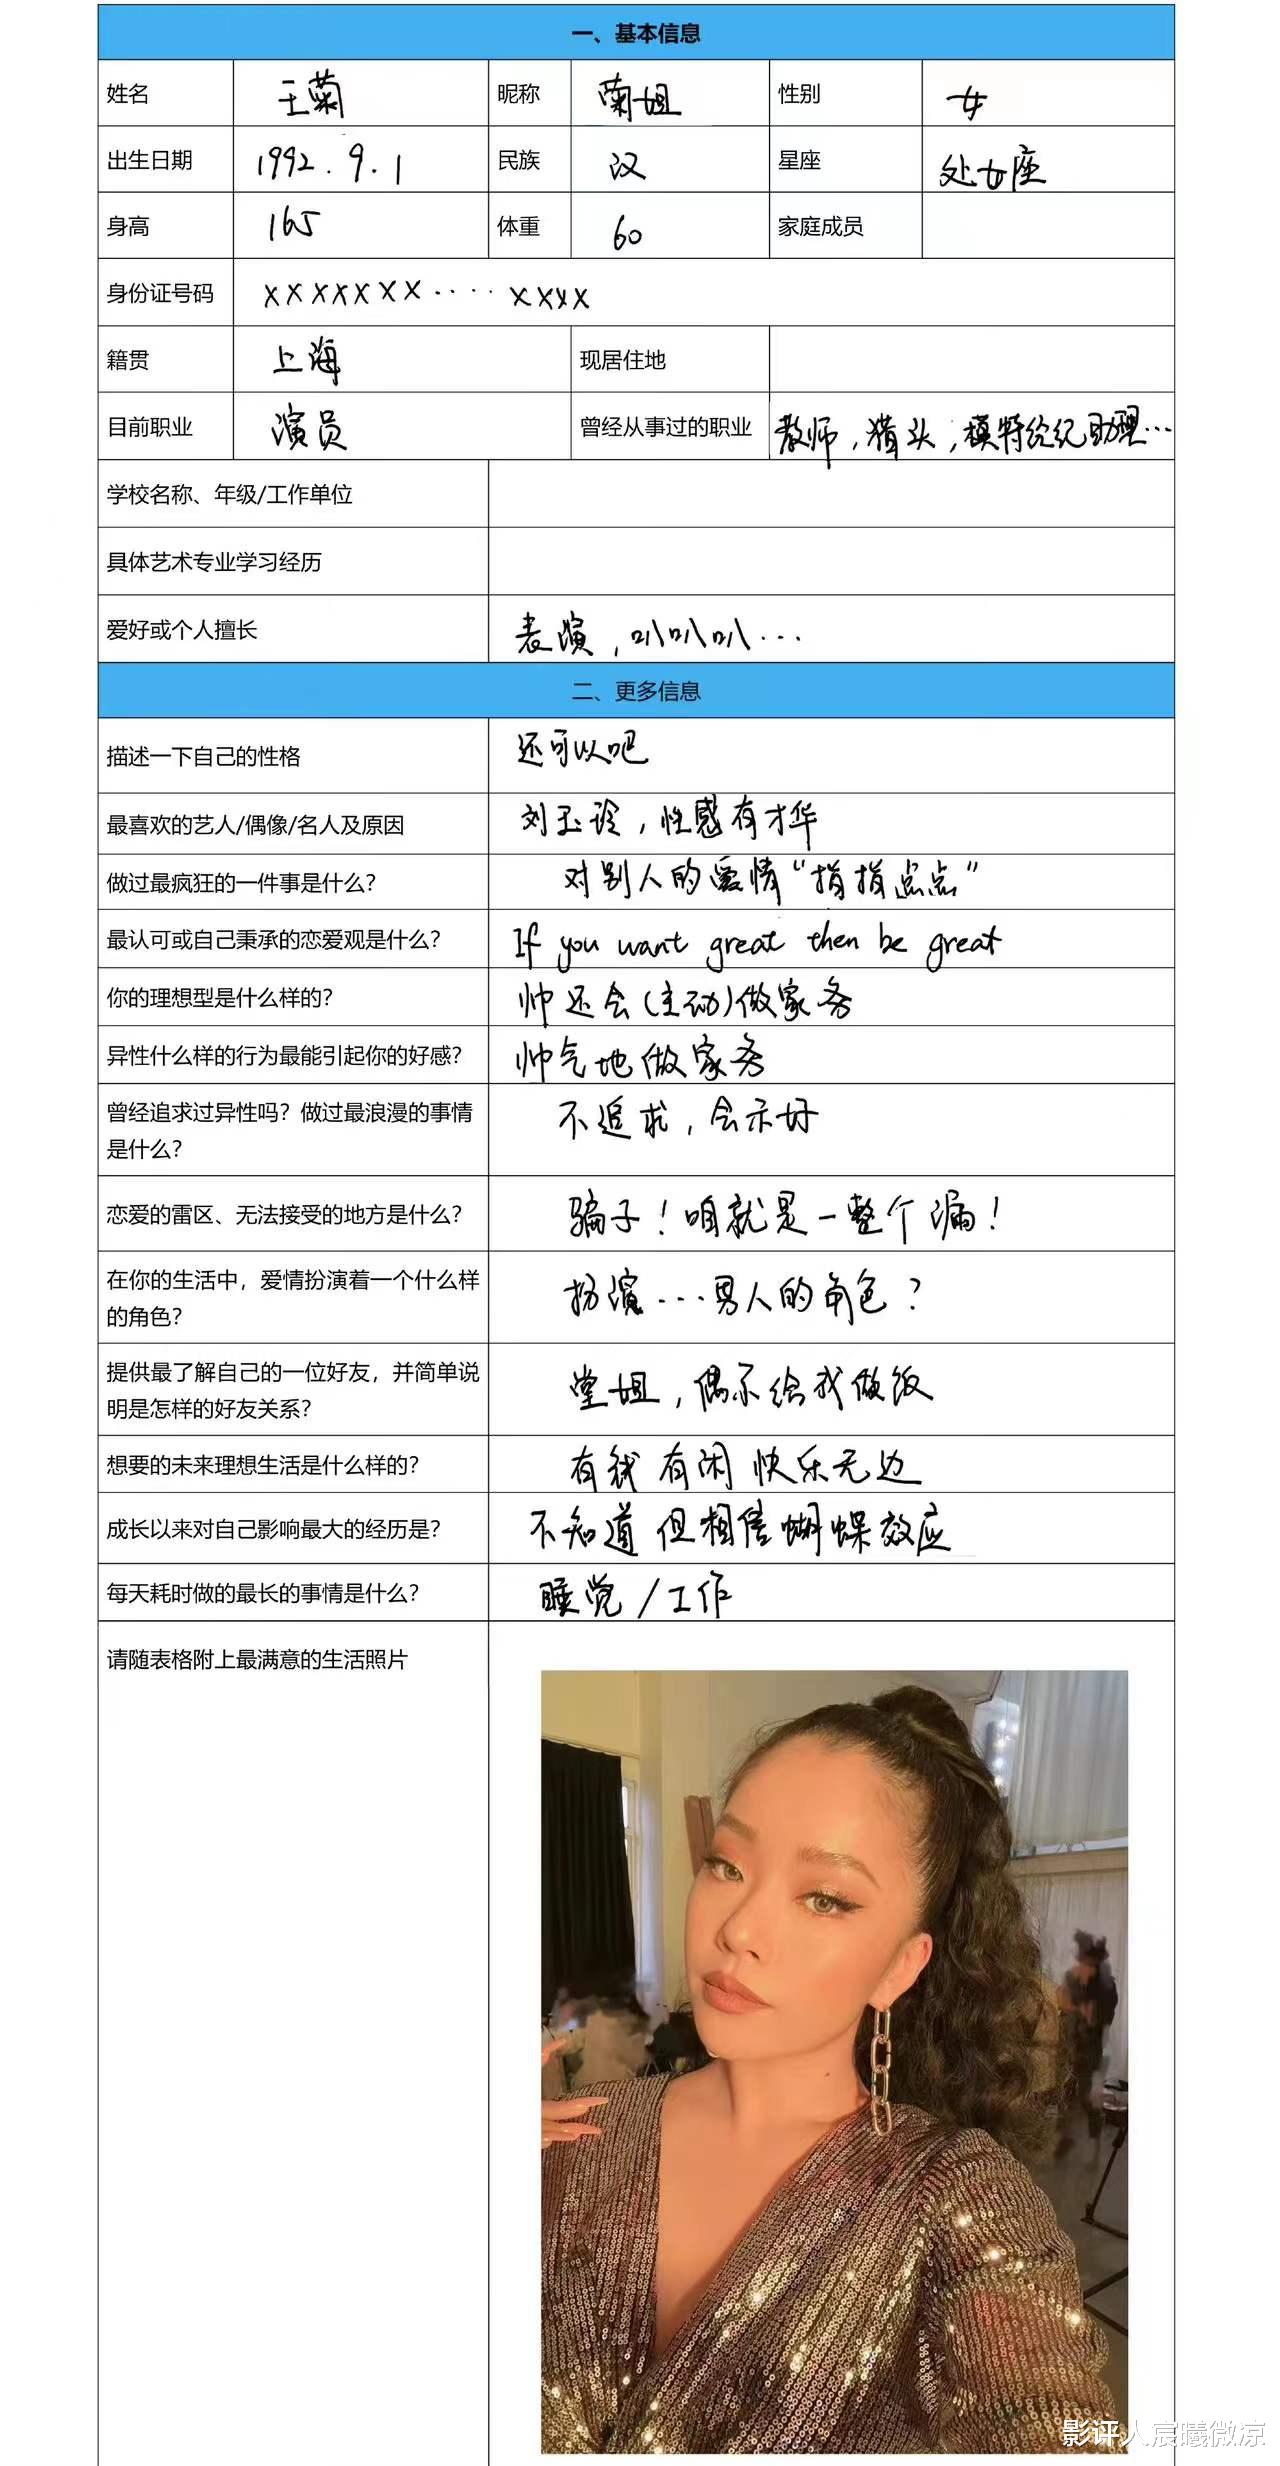 一、基本信息
姓名 王菊 昵称 菊姐 性别 女
出生日期 1992.9.1 民族 汉 星座 处女座
身高 165 体重 60 家庭成员
身份证号码 XXXXXXX····XXXX
籍贯 上海 现居住地
目前职业 演员 曾经从事过的职业 教师，猎头，模特经纪助理…
学校名称、年级/工作单位
具体艺术专业学习经历
爱好或个人擅长 表演，叭叭叭…
二、更多信息
描述一下自己的性格 还可以吧
最喜欢的艺人/偶像/名人及原因 刘玉玲，性感有才华
做过最疯狂的一件事是什么？ 对别人的爱情“指指点点”
最认可或自己秉承的恋爱观是什么？ If you want great then be great
你的理想型是什么样的？ 帅还会(主动)做家务
异性什么样的行为最能引起你的好感？ 帅气地做家务
曾经追求过异性吗？做过最浪漫的事情
是什么？ 不追求，会示好
恋爱的雷区、无法接受的地方是什么？ 骗子！咱就是一整个漏！
在你的生活中，爱情扮演着一个什么样
的角色？ 扮演…男人的角色？
提供最了解自己的一位好友，并简单说
明是怎样的好友关系？ 堂姐，偶尔给我做饭
想要的未来理想生活是什么样的？ 有钱有闲 快乐无边
成长以来对自己影响最大的经历是？ 不知道 但相信蝴蝶效应
每天耗时做的最长的事情是什么？ 睡觉/工作
请随表格附上最满意的生活照片
影评人宸曦微凉